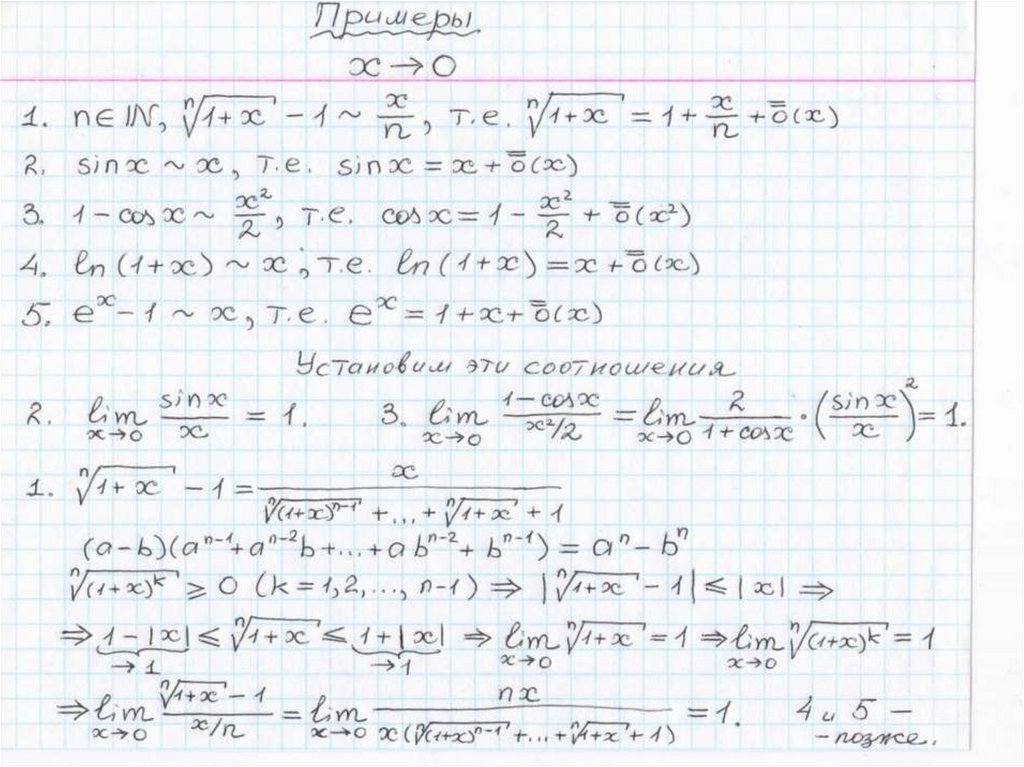 Примеры
x → 0
1. n ∈ ℕ, ⁿ√(1+x) − 1 ~ x/n, т.е. ⁿ√(1+x) = 1 + x/n + o̿(x)
2. sin x ~ x, т.е. sin x = x + o̿(x)
3. 1 − cos x ~ x²/2, т.е. cos x = 1 − x²/2 + o̿(x²)
4. ln(1+x) ~ x, т.е. ln(1+x) = x + o̿(x)
5. eˣ − 1 ~ x, т.е. eˣ = 1 + x + o̿(x)
Установим эти соотношения
2. lim_{x→0} sin x / x = 1. 3. lim_{x→0} (1 − cos x)/(x²/2) = lim_{x→0} 2/(1 + cos x) · (sin x / x)² = 1.
1. ⁿ√(1+x) − 1 = x / (ⁿ√((1+x)ⁿ⁻¹) + ... + ⁿ√(1+x) + 1)
(a−b)(aⁿ⁻¹ + aⁿ⁻²b + ... + abⁿ⁻² + bⁿ⁻¹) = aⁿ − bⁿ
ⁿ√((1+x)ᵏ) ⩾ 0 (k = 1, 2, ..., n−1) ⇒ |ⁿ√(1+x) − 1| ⩽ |x| ⇒
⇒ 1 − |x| ⩽ ⁿ√(1+x) ⩽ 1 + |x| ⇒ lim_{x→0} ⁿ√(1+x) = 1 ⇒ lim_{x→0} ⁿ√((1+x)ᵏ) = 1
→ 1 → 1
⇒ lim_{x→0} (ⁿ√(1+x) − 1)/(x/n) = lim_{x→0} nx / (x(ⁿ√((1+x)ⁿ⁻¹) + ... + ⁿ√(1+x) + 1)) = 1. 4 и 5 −
− позже.